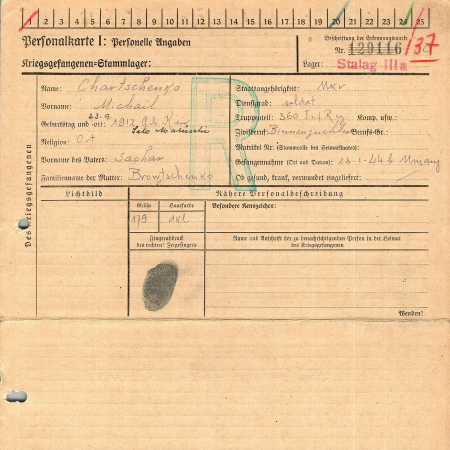 1 2 3 4 5 6 7 8 9 10 11 12 13 14 15 16 17 18 19 20 21 22 23 24 25
Personalkarte I: Personelle Angaben
Kriegsgefangenen-Stammlager:
Beschriftung der Erkennungsmarke
Nr. 129116
Lager: Stalag IIIa
137
Des Kriegsgefangenen
Name: Chartschenko
Vorname: Michail
Geburtstag und -ort: 23.9. 1912
Selo
Religion: Ort
Vorname des Vaters: Sachar
Familienname der Mutter: Browtschenko
Staatsangehörigkeit: Ukr
Dienstgrad: soldat
Truppenteil: 360 Komp. usw.:
Zivilberuf: Berufs-Gr.:
Matrikel Nr. (Stammrolle des Heimatstaates):
Gefangennahme (Ort und Datum): 23-1-44
Ob gesund, krank, verwundet eingeliefert:
R
Lichtbild
Nähere Personalbeschreibung
Größe
Haarfarbe
Besondere Kennzeichen:
179
dkl
Fingerabdruck
des rechten! Zeigefingers
Name und Anschrift der zu benachrichtigenden Person in der Heimat
des Kriegsgefangenen
Wenden!